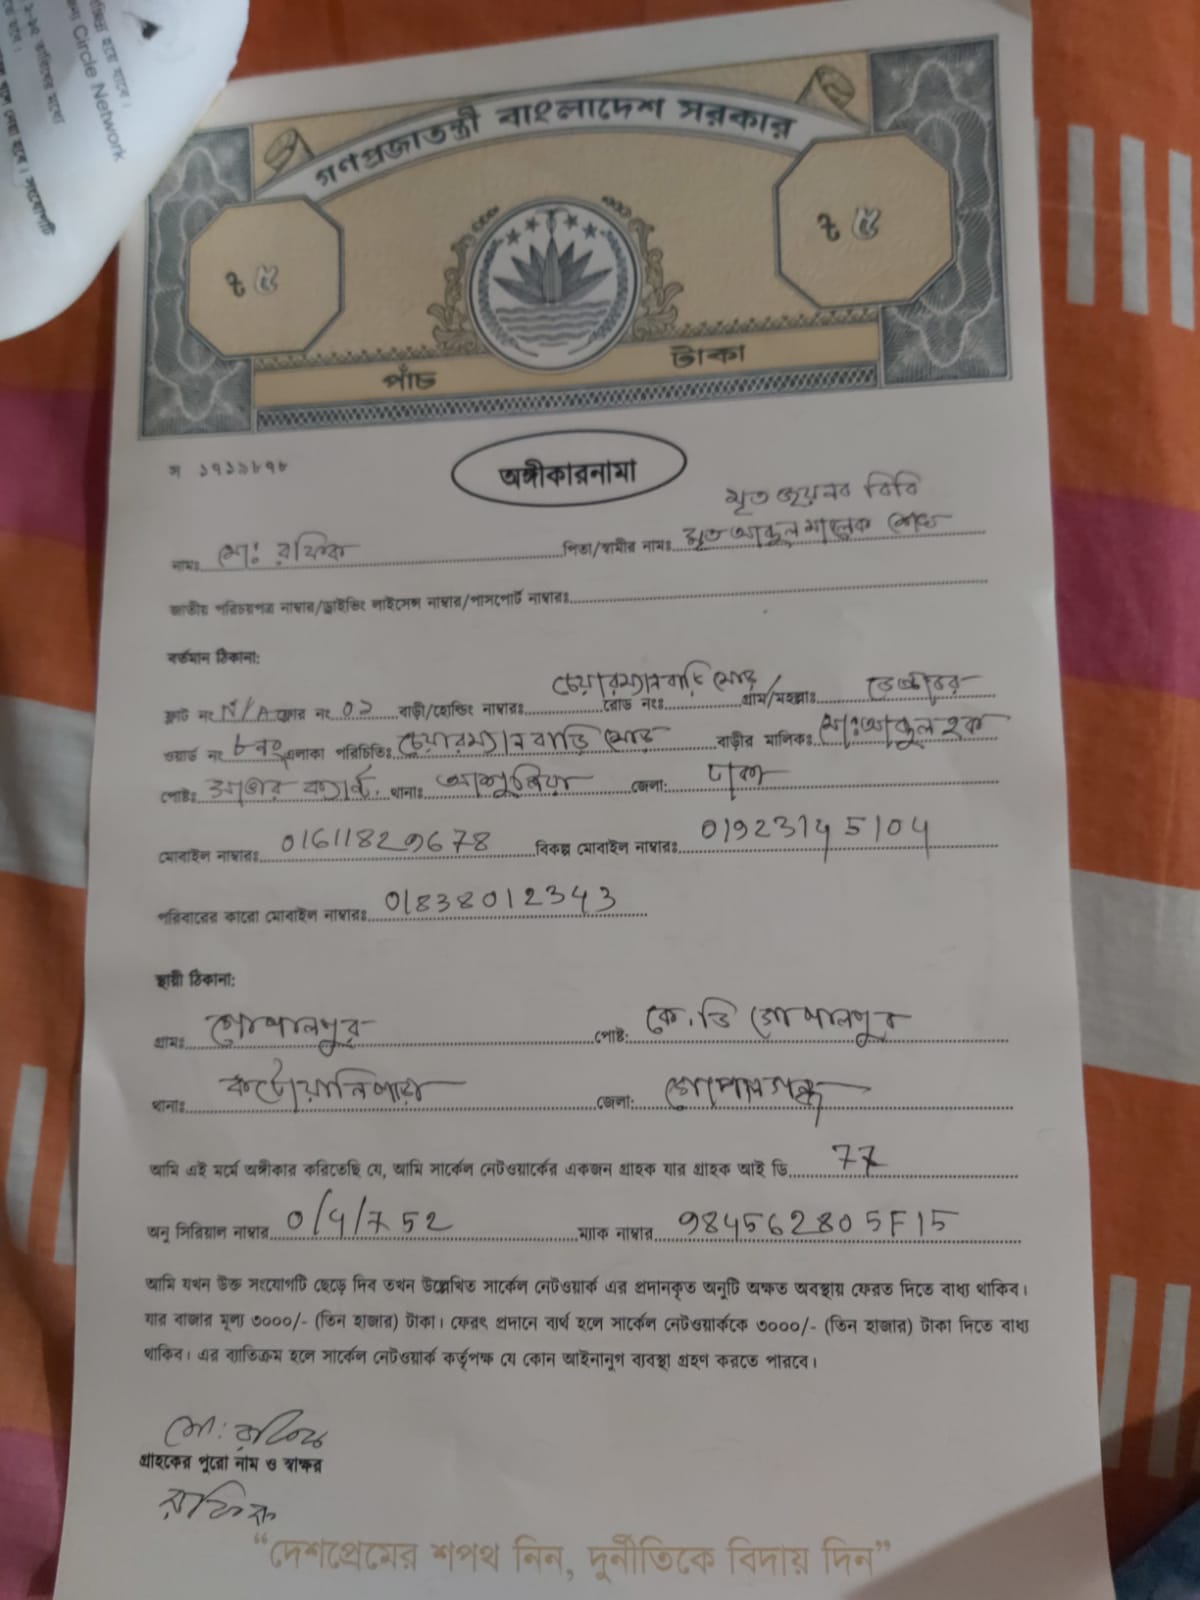 Circle Network
গণপ্রজাতন্ত্রী বাংলাদেশ সরকার
৳ ৫
৳ ৫
পাঁচ টাকা
স ১৭১৯৮৭৮
অঙ্গীকারনামা
মৃত জয়নব বিবি
নামঃ মোঃ রফিক পিতা/স্বামীর নামঃ মৃত আব্দুল মালেক শেখ
জাতীয় পরিচয়পত্র নাম্বার/ড্রাইভিং লাইসেন্স নাম্বার/পাসপোর্ট নাম্বারঃ
বর্তমান ঠিকানা:
ফ্লাট নং N/A ফ্লোর নং ০১ বাড়ী/হোল্ডিং নাম্বারঃ চেয়ারম্যানবাড়ি মোড় রোড নংঃ গ্রাম/মহল্লাঃ
ওয়ার্ড নং ৮নং এলাকা পরিচিতিঃ চেয়ারম্যান বাড়ি মোড় বাড়ীর মালিকঃ মোঃ আব্দুল হক
পোষ্টঃ সাভার ক্যান্ট. থানাঃ আশুলিয়া জেলা: ঢাকা
মোবাইল নাম্বারঃ 01611829678 বিকল্প মোবাইল নাম্বারঃ 01923145104
পরিবারের কারো মোবাইল নাম্বারঃ 01838012343
স্থায়ী ঠিকানা:
গ্রামঃ গোপালপুর পোষ্ট: কে.ডি গোপালপুর
থানাঃ কটোয়ালিপাড়া জেলা: গোপালগঞ্জ
আমি এই মর্মে অঙ্গীকার করিতেছি যে, আমি সার্কেল নেটওয়ার্কের একজন গ্রাহক যার গ্রাহক আই ডি 77
অনু সিরিয়াল নাম্বার 0/4/752 ম্যাক নাম্বার 984562805F15
আমি যখন উক্ত সংযোগটি ছেড়ে দিব তখন উল্লেখিত সার্কেল নেটওয়ার্ক এর প্রদানকৃত অনুটি অক্ষত অবস্থায় ফেরত দিতে বাধ্য থাকিব।
যার বাজার মূল্য ৩০০০/- (তিন হাজার) টাকা। ফেরৎ প্রদানে ব্যর্থ হলে সার্কেল নেটওয়ার্ককে ৩০০০/- (তিন হাজার) টাকা দিতে বাধ্য
থাকিব। এর ব্যতিক্রম হলে সার্কেল নেটওয়ার্ক কর্তৃপক্ষ যে কোন আইনানুগ ব্যবস্থা গ্রহণ করতে পারবে।
মো: রফিক
গ্রাহকের পুরো নাম ও স্বাক্ষর
রফিক
“দেশপ্রেমের শপথ নিন, দুর্নীতিকে বিদায় দিন”